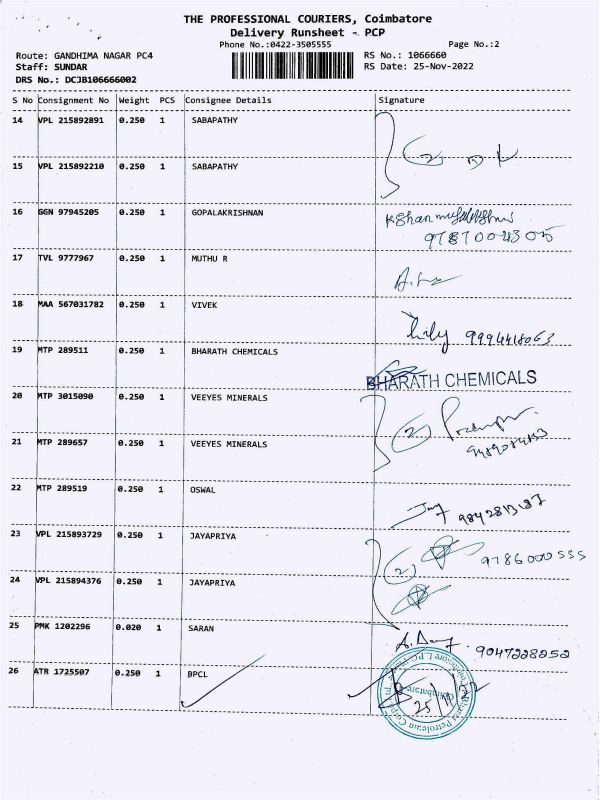 THE PROFESSIONAL COURIERS, Coimbatore
Delivery Runsheet - PCP
Phone No.:0422-3505555
Page No.:2
Route: GANDHIMA NAGAR PC4
RS No.: 1066660
Staff: SUNDAR
RS Date: 25-Nov-2022
DRS No.: DCJB106666002
S No Consignment No Weight PCS Consignee Details Signature
14 VPL 215892891 0.250 1 SABAPATHY
15 VPL 215892210 0.250 1 SABAPATHY
2
16 GGN 97945205 0.250 1 GOPALAKRISHNAN
17 TVL 9777967 0.250 1 MUTHU R
18 MAA 567031782 0.250 1 VIVEK
9994418063
19 MTP 289511 0.250 1 BHARATH CHEMICALS
BHARATH CHEMICALS
20 MTP 3015090 0.250 1 VEEYES MINERALS
2
21 MTP 289657 0.250 1 VEEYES MINERALS
22 MTP 289519 0.250 1 OSWAL
23 VPL 215893729 0.250 1 JAYAPRIYA
2 9786000555
24 VPL 215894376 0.250 1 JAYAPRIYA
25 PMK 1202296 0.020 1 SARAN
9047228252
26 ATR 1725507 0.250 1 BPCL
25/11/22